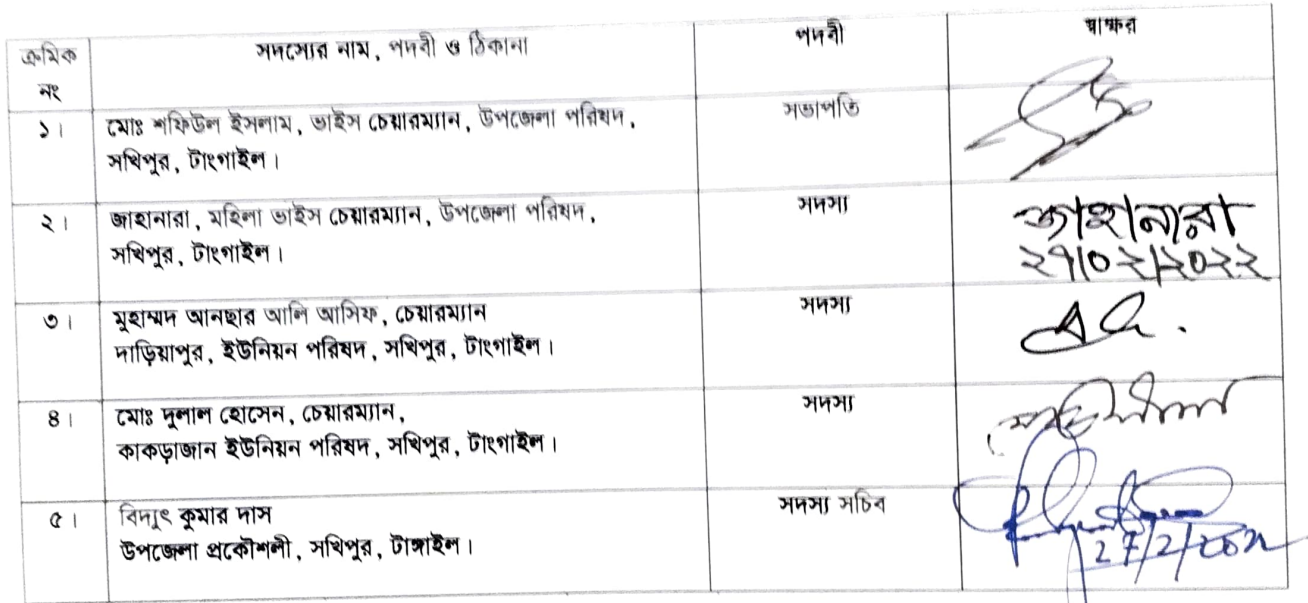 ক্রমিক নং
সদস্যের নাম, পদবী ও ঠিকানা
পদবী
স্বাক্ষর
১।
মোঃ শফিউল ইসলাম, ভাইস চেয়ারম্যান, উপজেলা পরিষদ,
সখিপুর, টাংগাইল।
সভাপতি
২।
জাহানারা, মহিলা ভাইস চেয়ারম্যান, উপজেলা পরিষদ,
সখিপুর, টাংগাইল।
সদস্য
জাহানারা
২৭/০২/২০২২
৩।
মুহাম্মদ আনছার আলি আসিফ, চেয়ারম্যান
দাড়িয়াপুর, ইউনিয়ন পরিষদ, সখিপুর, টাংগাইল।
সদস্য
৪।
মোঃ দুলাল হোসেন, চেয়ারম্যান,
কাকড়াজান ইউনিয়ন পরিষদ, সখিপুর, টাংগাইল।
সদস্য
৫।
বিদ্যুৎ কুমার দাস
উপজেলা প্রকৌশলী, সখিপুর, টাঙ্গাইল।
সদস্য সচিব